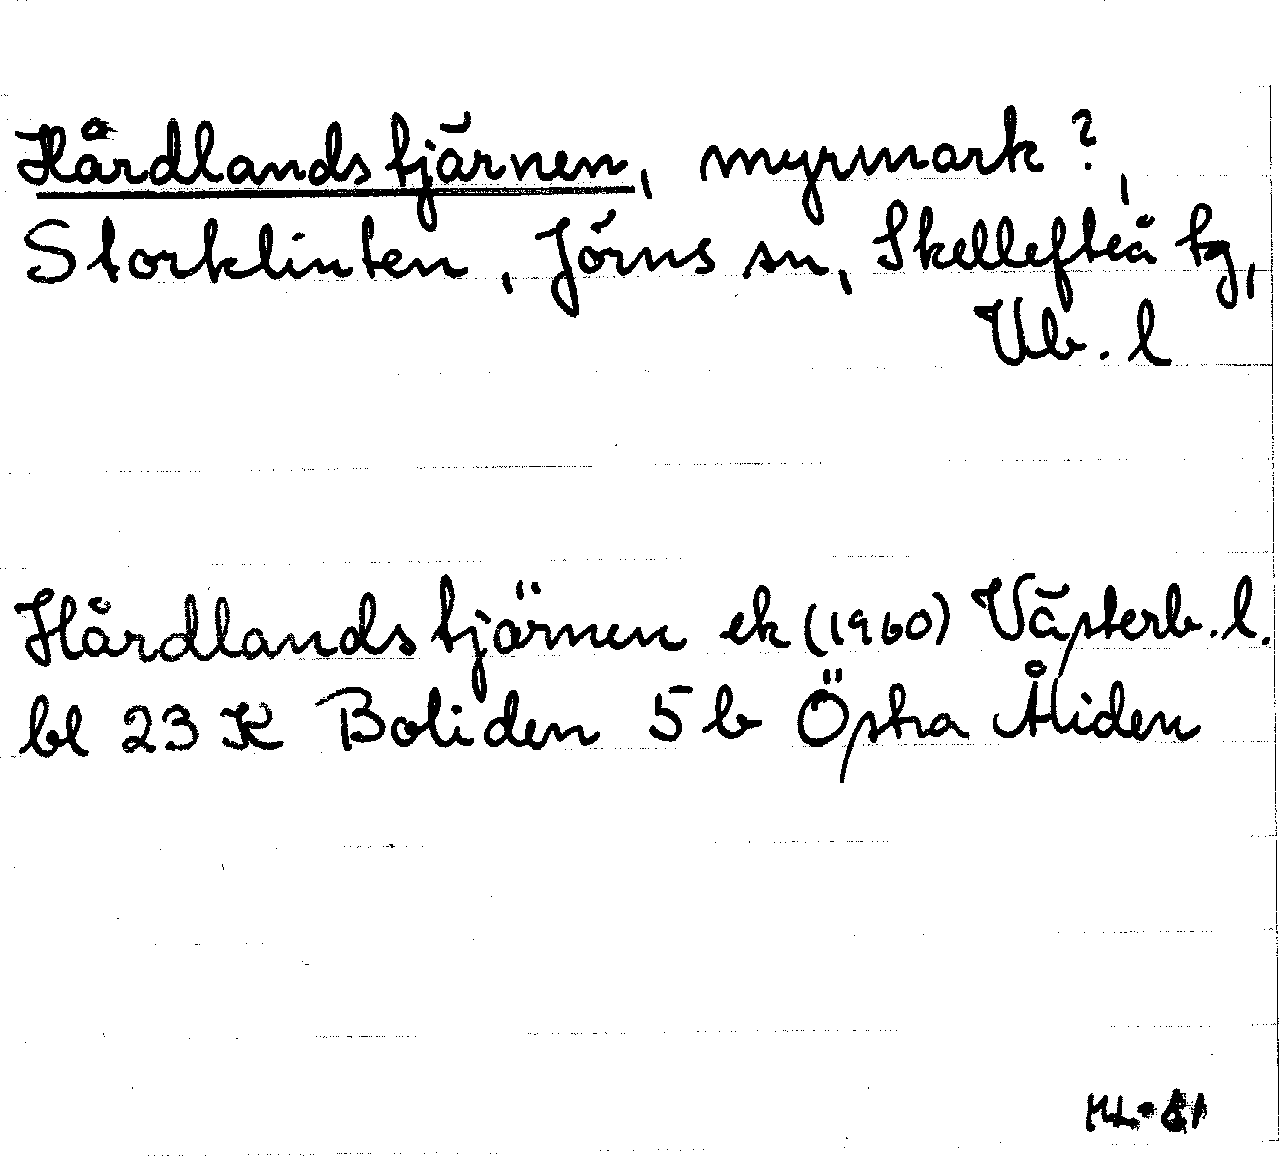 Hårdlandstjärnen, myrmark?,
Storklinten, Jörns sn, Skellefteå tg,
Vb. l
Hårdlandstjärnen ek (1960) Västerb. l.
bl 23 K Boliden 5 b Östra Åliden